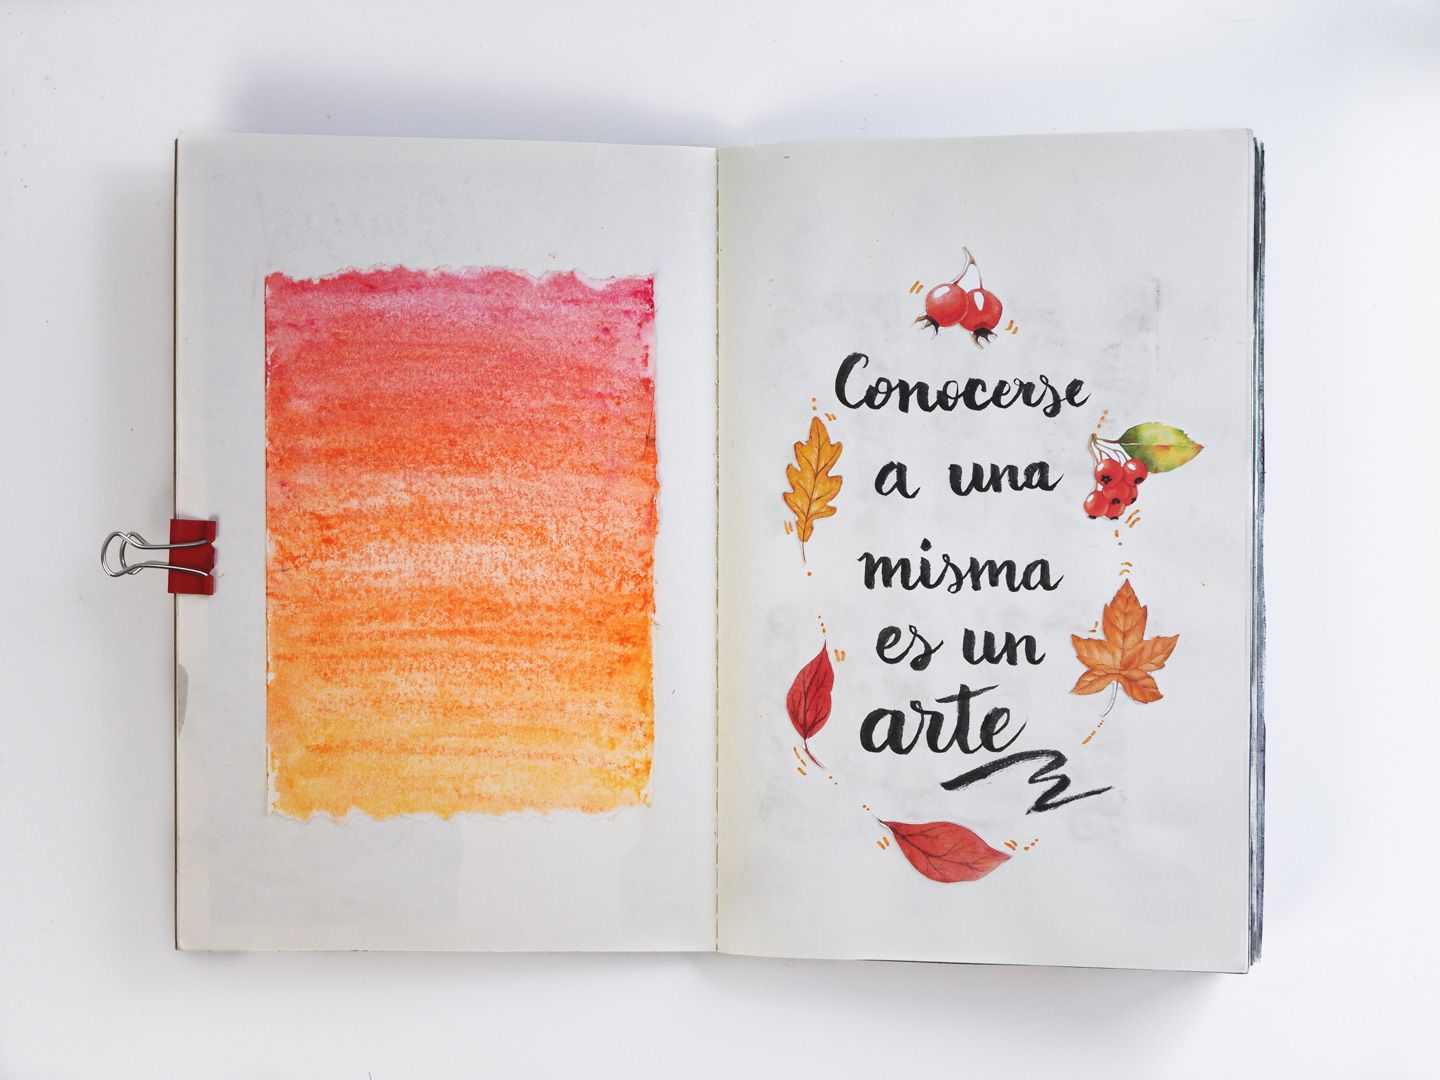 Conocerse
a una
misma
es un
arte